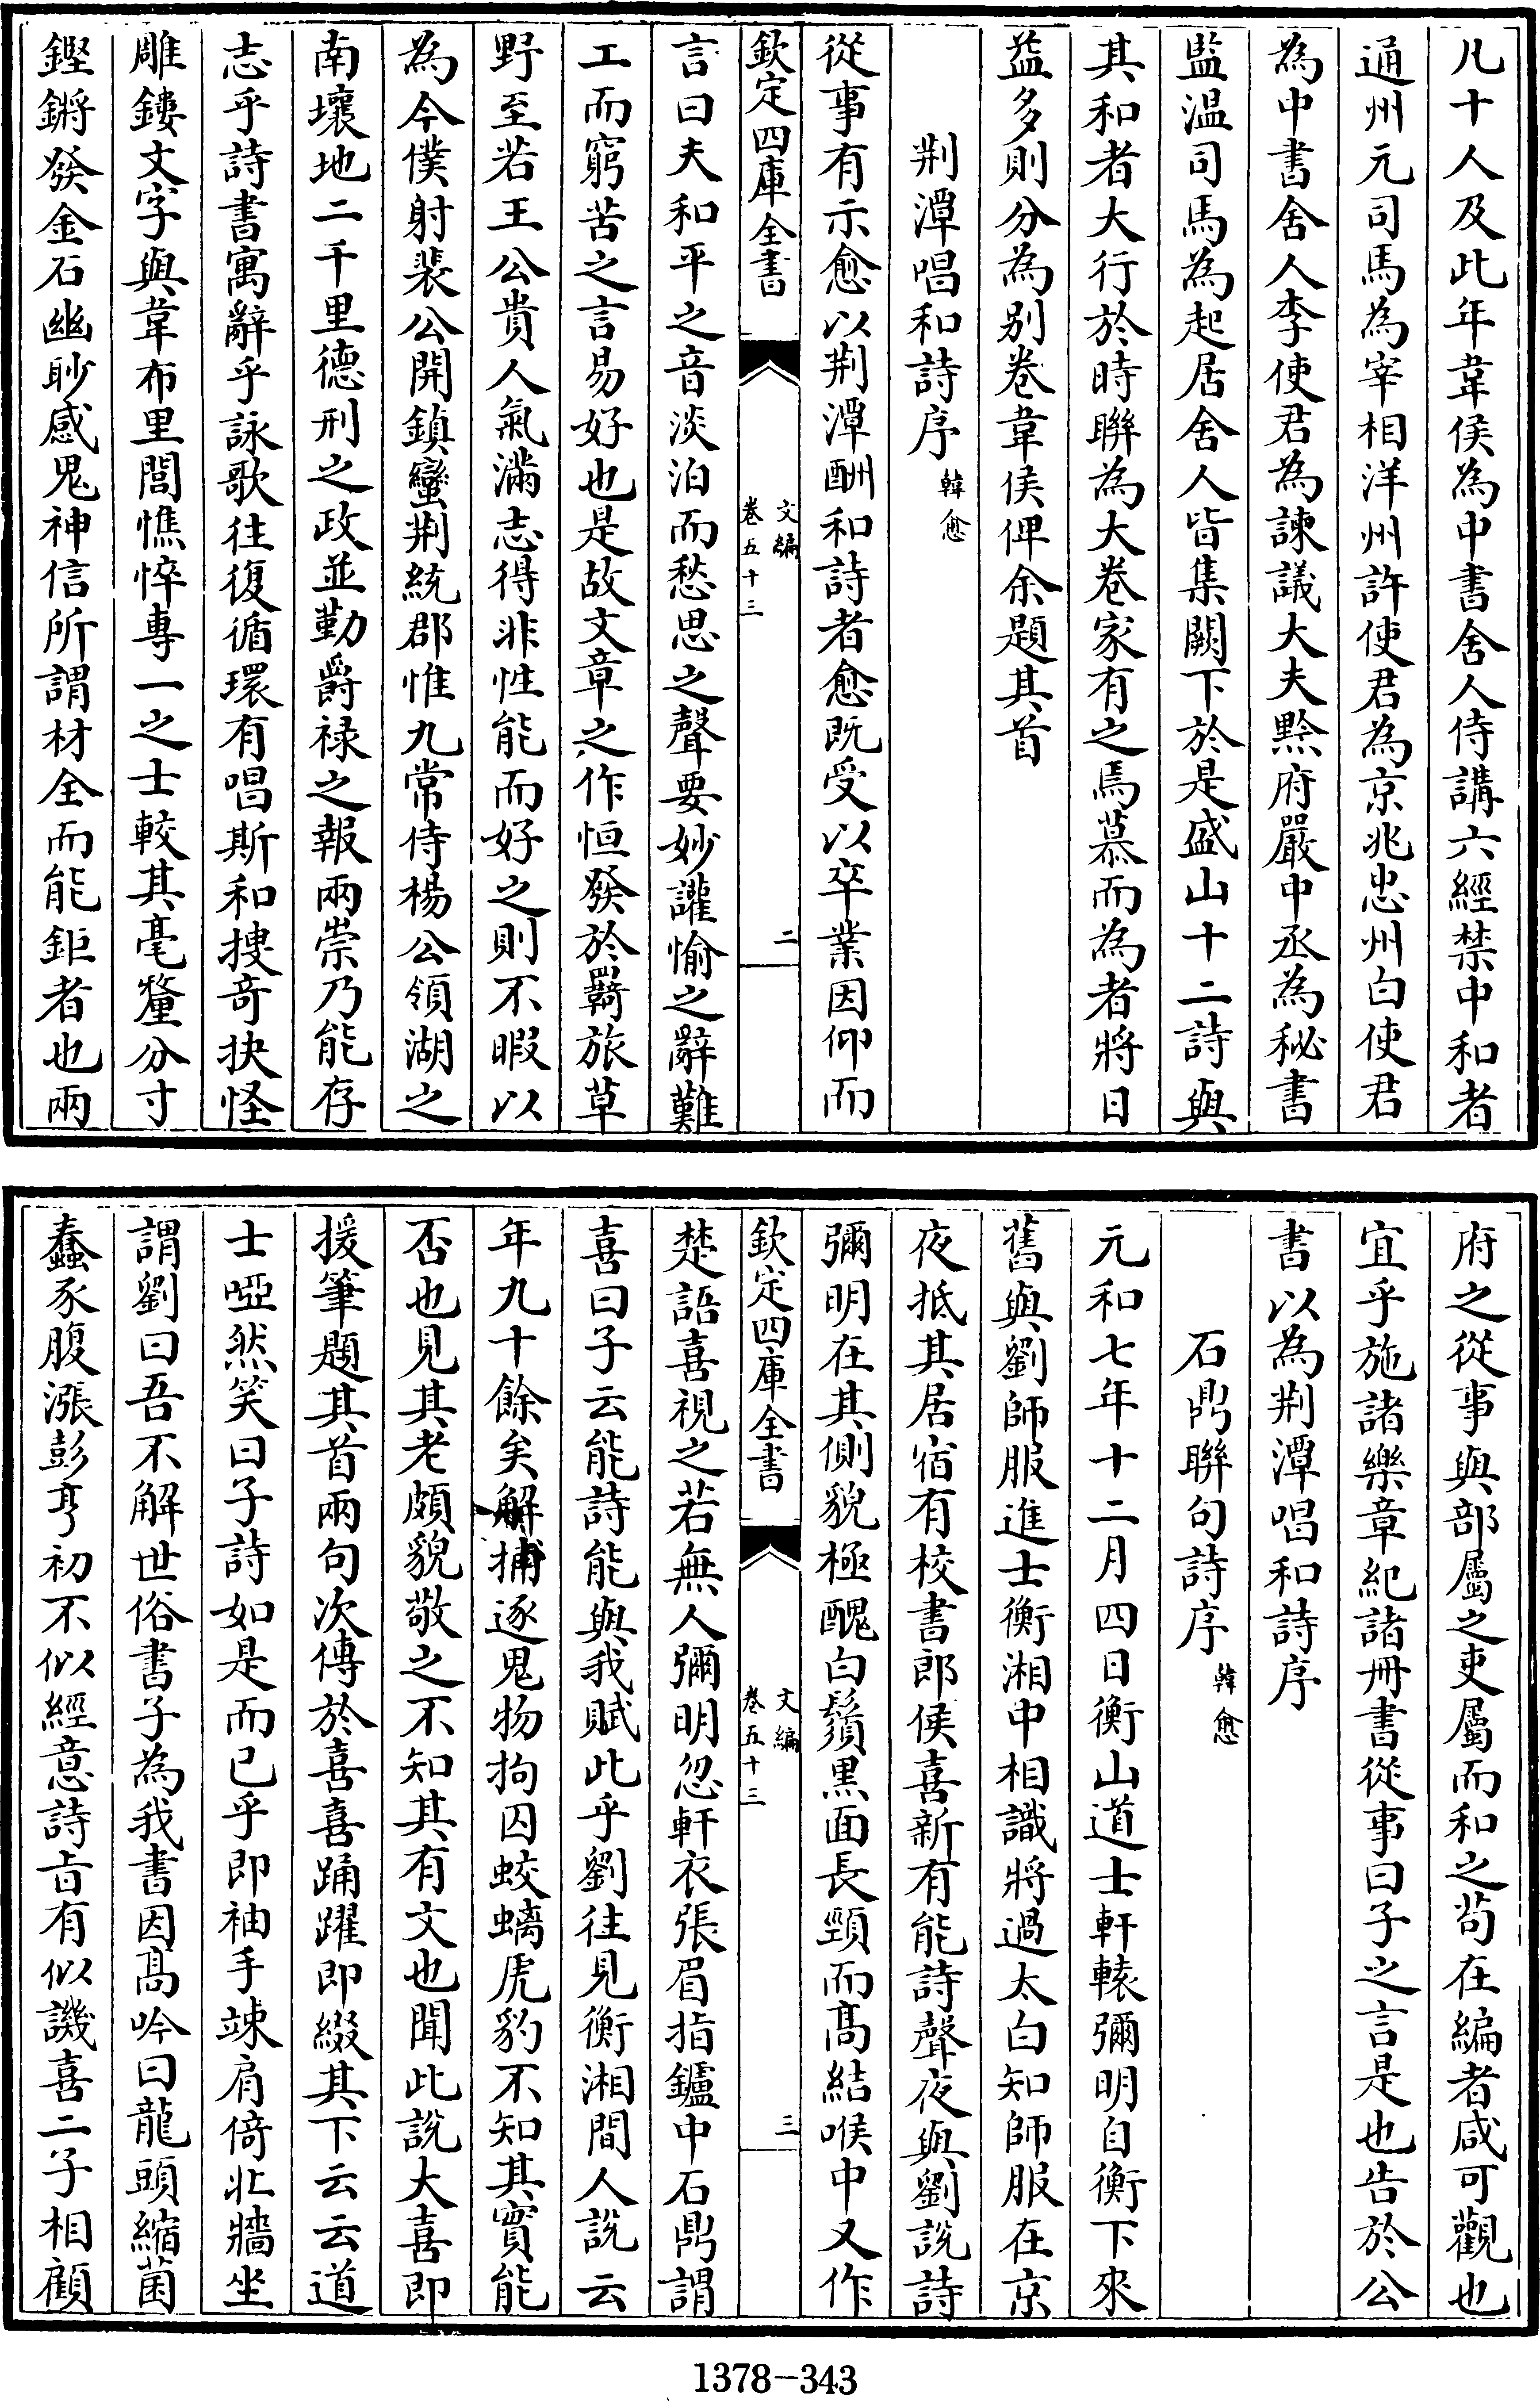 凡十人及此年韋侯為中書舍人侍講六經禁中和者
通州元司馬為宰相洋州許使君為京兆忠州白使君
為中書舍人李使君為諫議大夫黔府嚴中丞為秘書
監温司馬為起居舍人皆集闕下於是盛山十二詩與
其和者大行於時聯為大卷家有之焉慕而為者將日
益多則分為别卷韋侯俾余題其首
荆潭唱和詩序韓愈
從事有示愈以荆潭酬和詩者愈既受以卒業因仰而
欽定四庫全書
文編
卷五十三
二
言曰夫和平之音淡泊而愁思之聲要妙讙愉之辭難
工而窮苦之言易好也是故文章之作恒發於羇旅草
野至若王公貴人氣滿志得非性能而好之則不暇以
為今僕射裴公開鎮蠻荆統郡惟九常侍楊公領湖之
南壤地二千里德刑之政並勤爵禄之報兩崇乃能存
志乎詩書寓辭乎詠歌往復循環有唱斯和搜奇抉怪
雕鏤文字與韋布里閭憔悴專一之士較其毫釐分寸
鏗鏘發金石幽眇感鬼神信所謂材全而能鉅者也兩
府之從事與部屬之吏屬而和之茍在編者咸可觀也
宜乎施諸樂章紀諸册書從事曰子之言是也告於公
書以為荆潭唱和詩序
石鼎聯句詩序韓愈
元和七年十二月四日衡山道士軒轅彌明自衡下來
舊與劉師服進士衡湘中相識將過太白知師服在京
夜抵其居宿有校書郎侯喜新有能詩聲夜與劉説詩
彌明在其側貌極醜白鬚黑面長頸而髙結喉中又作
欽定四庫全書
文編
卷五十三
三
楚語喜視之若無人彌明忽軒衣張眉指鑪中石鼎謂
喜曰子云能詩能與我賦此乎劉往見衡湘間人説云
年九十餘矣解捕逐鬼物拘囚蛟螭虎豹不知其實能
否也見其老頗貌敬之不知其有文也聞此説大喜即
援筆題其首兩句次傳於喜喜踊躍即綴其下云云道
士啞然笑曰子詩如是而已乎即袖手竦肩倚北牆坐
謂劉曰吾不解世俗書子為我書因髙吟曰龍頭縮菌
蠢豕腹漲彭亨初不似經意詩旨有似譏喜二子相顧
1378-343